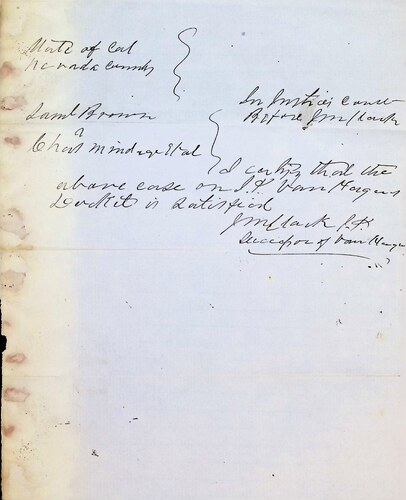 State of Cal
Nevada County
In Justices Court
Before J M Clark
Saml Brown
vs
Chas Mindage et al
I certify that the
above case on J.P. Van Hagens
Docket is Satisfied
J M Clark J.P.
Successor of Van Hagen